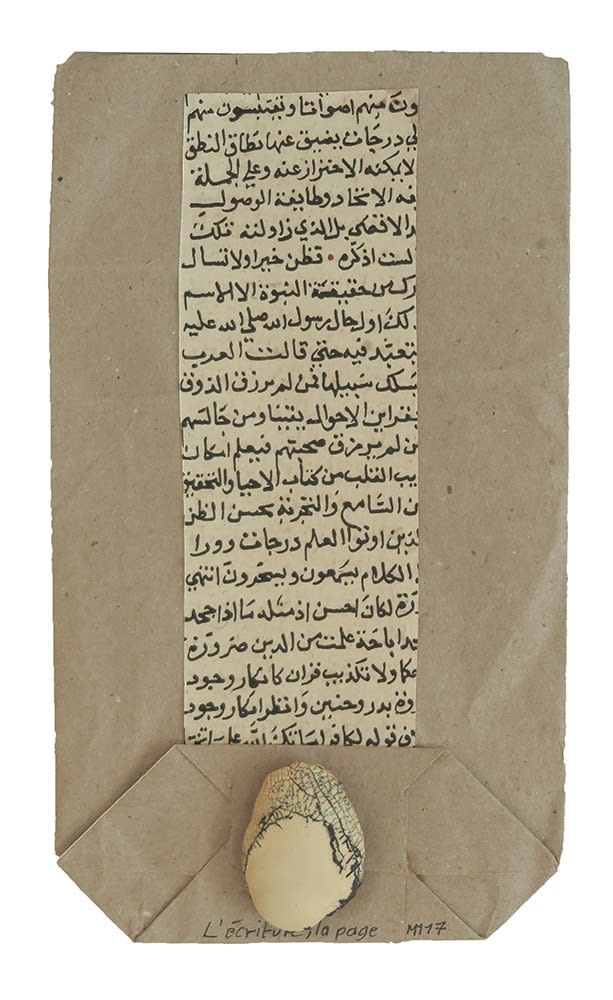 ون منهم اصواتا ويقتبسون منهم
لي درجات يضيق عنها نطاق النطق
لا يمكنه الاحتراز عنه وعلي الجملة
يفه الاتحاد وطايفة الوصول
الاقصي بل الذي زاولته تلك
لست اذكره • فظن خيرا ولا تسال
رك من حقيقة النبوة الا الاسم
ذلك اول حال رسول الله صلي الله عليه
يتعبد فيه حتي قالت العرب
يسلك سبيلها فمن لم يرزق الذوق
بقراين الاحوال يقينا ومن جالسهم
من لم يرزق صحبتهم فيعلم امكان
يب القلب من كتاب الاحيا والتحقيق
من التسامع والتجربة بحسن الظن
لذين اوتوا العلم درجات وورا
الكلام يسمعون ويسخرون انتهي
رة لكان احسن اذ مثله ما اذا جحد
حد اباحة علمت من الدين ضرورة
حكا ولا تكذيب قران كانكار وجود
زوة بدر وحنين وانظر انكار وجود
في قوله
L'écriture, la page MM17